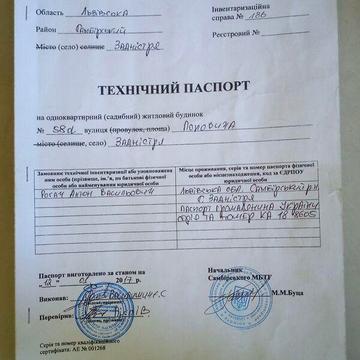 Область Львівська
Інвентаризаційна
справа № 186
Район Самбірський
Місто (село) селище Задністря
Реєстровий №
ТЕХНІЧНИЙ ПАСПОРТ
на одноквартирний (садибний) житловий будинок
№ 58d вулиця (провулок, площа) Поповича
місто (селище) Задністря
Замовник технічної інвентаризації або уповноважена
ним особа (прізвище, ім'я, по батькові фізичної
особи або найменування юридичної особи
Місце проживання, серія та номер паспорта фізичної
особи або місцезнаходження, код за ЄДРПОУ
юридичної особи
Рогач Антон Васильович
Львівська обл. Самбірський р-н
с. Задністря
Паспорт громадянина України
серія та номер КА 18 8605
Паспорт виготовлено за станом на
"12" 01 2017 р.
Начальник
Самбірського МБТІ
Виконав:
М.М.Буца
Перевірив:
Серія та номер кваліфікаційного
сертифіката: АЕ № 001268